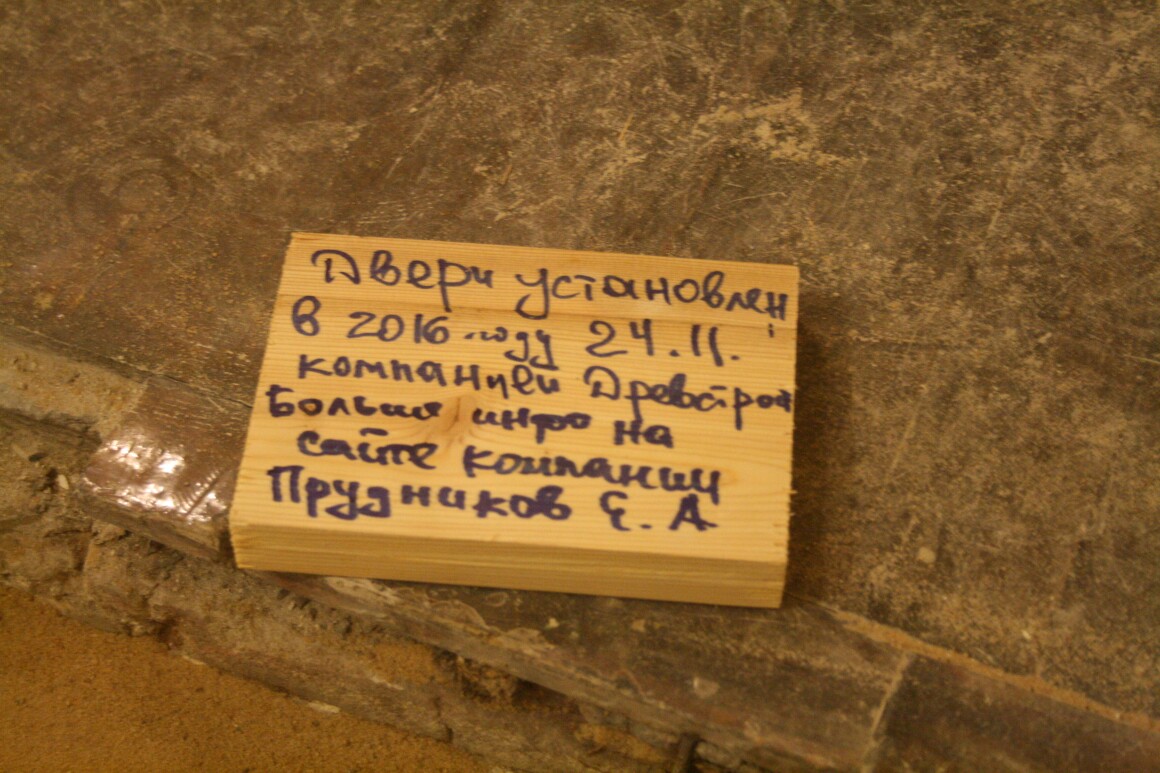 Двери установлен
в 2016 году 24.11.
компанией Древстрой
Больше инфо на
сайте компании
Прудников Е. А